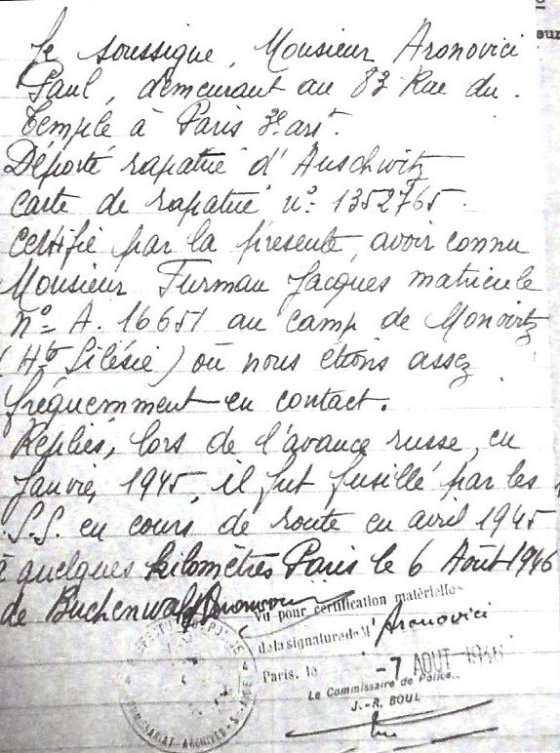 Je soussigné, Monsieur Aronovici
Paul, demeurant au 83 Rue du
Temple à Paris 3e art.
Déporté rapatrié d'Auschwitz
carte de rapatrié no 1352765.
Certifie par la présente, avoir connu
Monsieur Furman Jacques matricule
no A. 16651 au camp de Monovitz
(Hte Silésie) où nous étions assez
fréquemment en contact.
Repliés, lors de l'avance russe, en
Janvier 1945, il fut fusillé par les
S.S. en cours de route en avril 1945
à quelques kilomètres Paris le 6 Août 1946
de Buchenwald Aronovici
Vu pour certification matérielle
de la signature de M Aronovici
Paris, le -7 AOUT 1946
Le Commissaire de Police,
J.-R. BOUL